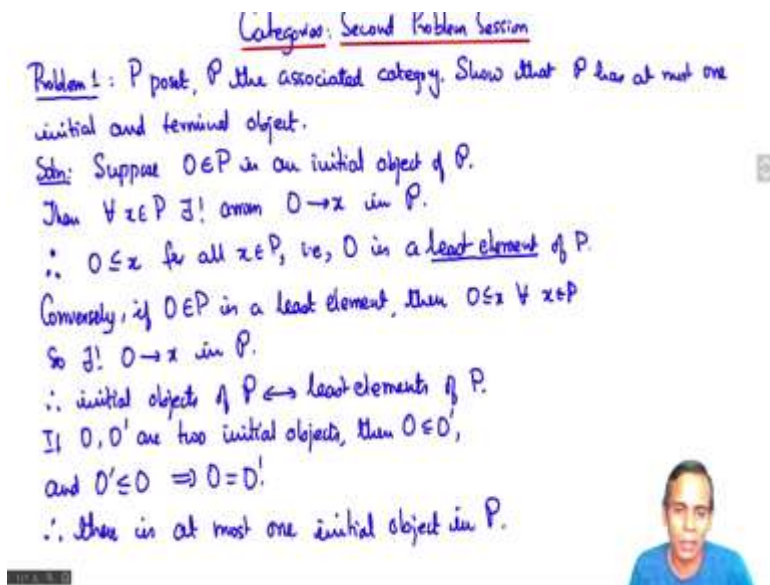 Categories: Second Problem Session
Problem 1: P poset, P the associated category. Show that P has at most one
initial and terminal object.
Soln: Suppose 0∈P is an initial object of P.
Then ∀ x∈P ∃! arrow 0→x in P.
∴ 0≤x for all x∈P, i.e., 0 is a least element of P.
Conversely, if 0∈P is a least element, then 0≤x ∀ x∈P
So ∃! 0→x in P.
∴ initial objects of P ↔ least elements of P.
If 0, 0' are two initial objects, then 0≤0',
and 0'≤0 ⇒ 0=0'.
∴ there is at most one initial object in P.